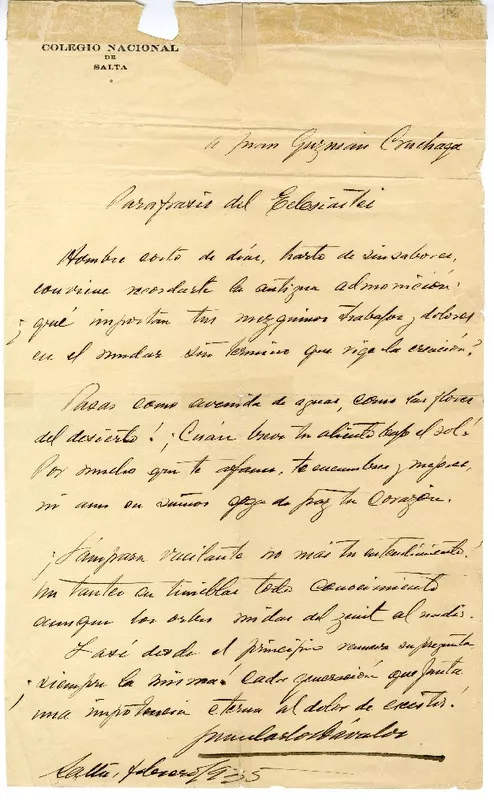 COLEGIO NACIONAL
DE
SALTA
a Juan Guzmán Cruchaga
Parafrasis del Eclesiastés
Hombre corto de días, harto de sinsabores,
conviene recordarte la antigua admonición:
¿qué importan tus mezquinos trabajos y dolores
en el mudar sin término que rige la creación?
Pasas como avenida de aguas, como las flores
del desierto! ¡Cuán breve tu aliento bajo el sol!
Por mucho que te afanes, te encumbres y mejores,
ni aun en sueños goza de paz tu corazón.
¡Lámpara vacilante no más tu entendimiento!
Un tanteo en tinieblas todo conocimiento
aunque los orbes midas del zenit al nadir.
Y así desde el principio renueva su pregunta
¡siempre la misma! cada generación que junta
una impotencia eterna al dolor de existir!
Juan Carlos Dávalos
Salta, febrero/935